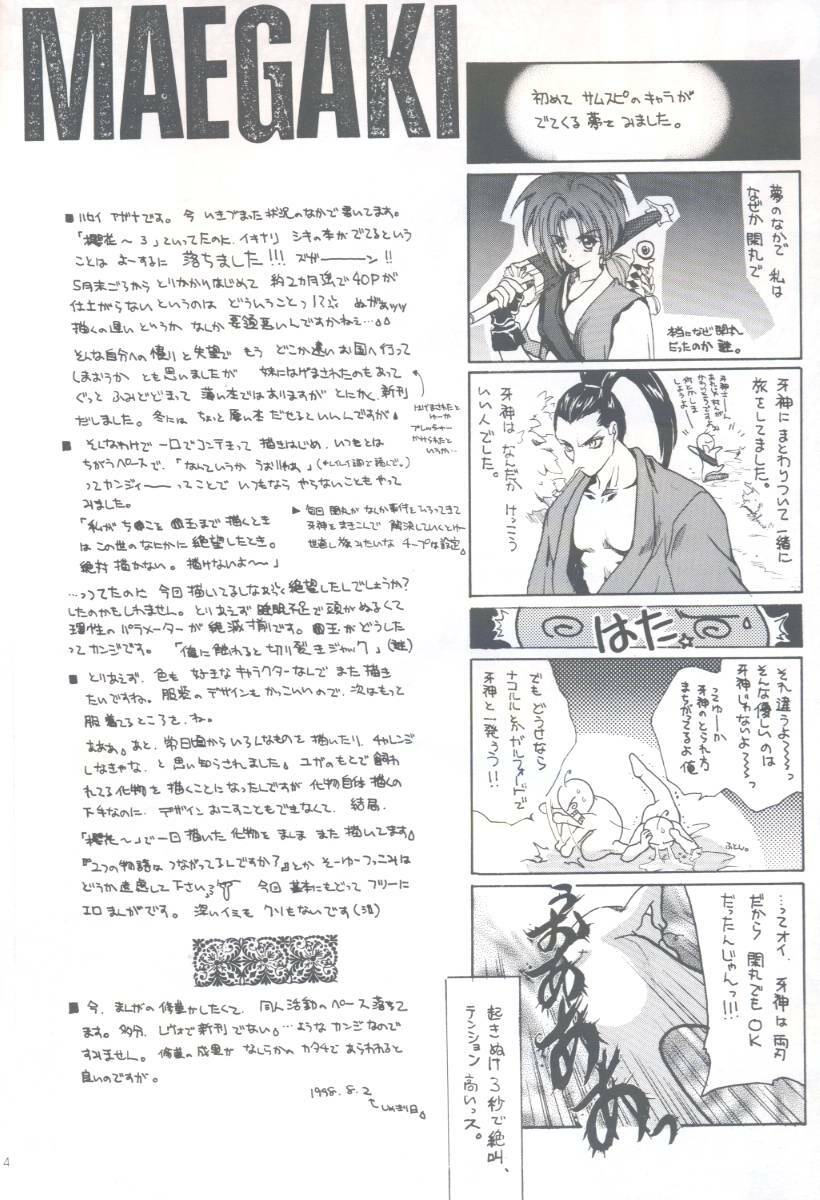 MAEGAKI
■ ハロイ アガナです。今 いきづまった状況のなかで書いてます。
「櫻花～3」といってたのに、イキナリ シキの本がでてるという
ことは よーするに 落ちました!!! ズガーーーン!!
5月末ごろから とりかかりはじめて 約2カ月強で 40Pが
仕上がらないというのは どういうことっ!?
描くの遅い というか なんか要領悪いんですかねえ…
そんな自分への憤りと失望で もう どこか遠いお国へ行って
しまおうか とも思いましたが 妹にはげまされたのもあって
ぐっと ふみとどまって 薄い本ではありますが とにかく、新刊
だしました。冬には ちょっと厚い本 だせるといいんですが。
はげまされたと
ゆーか
プレッシャー
かけられたと
いうか…
■ そんなわけで 一日でコンテきって 描きはじめ、いつもとは
ちがうペースで、「なんていうか
ってカンジィーーってことで いつもなら やらないこともやって
みました。
▶ 毎回 閑丸が なんか事件をひろってきて
牙神をまきこんで 解決していくとゆー
世直し旅みたいな チープな設定。
「私が ち●こと ●玉まで描くとき
は この世のなにかに 絶望したとき。
絶対 描かない。描けないよ～～」
…ってたのに 今回 描いてるしなあ。絶望したんでしょうか?
したのかもしれません。とりあえず 睡眠不足で 頭がぬるくて
理性の パラメーターが 絶滅寸前です。●玉がどうした
ってカンジです。「俺に触れると 切り裂きジャック」(謎)
■ とりあえず、色も 好きなキャラクターなんで また 描き
たいですね。服装の デザインも かっこいいので、次はもっと
服 着てるところを、ね。
あああ。あと、常日頃から いろんなものを 描いたり、チャレンジ
しなきゃな、と 思い知らされました。ユガのもとで 飼わ
れてる化物を 描くことになったんですが 化物自体 描くの
下手なのに、デザイン おこすこともできなくて、結局、
「櫻花～」で一回描いた 化物を まんま また 描いてます。
『2つの物語は つながってるんですか?』とか そーゆーつっこみは
どうか 遠慮して下さい。今回 基本にもどって フリーに
エロまんがです。深いイミも クソもないです(泣)
■ 今、まんがの 修業がしたくて、同人活動の ペース 落ちて
ます。多分、レヴォで 新刊 でない。…ような カンジなので
すみません。修業の成果が なんらかの カタチで あらわれると
良いのですが。
1998. 8. 2
しめきり日。
初めて サムスピのキャラが
でてくる 夢を みました。
夢のなかで 私は
なぜか 閑丸で
本当になぜ 閑丸
だったのか 謎。
牙神にまとわりついて 一緒に
旅をしてました。
牙神は なんだか けっこう
いい人でした。
はた☆
それ違うよ～～っ
そんな優しいのは
牙神じゃないよ～～っ
ってゆーか
牙神のとられ方
まちがってるよ 俺
でも どうせなら
ナコルルとか ガルフォードで
牙神と 一発ろう!!
ふとん。
…ってオイ、牙神は 両刀
だから 閑丸でも OK
だったんじゃんっ!!!
うおああああっ
起きぬけ 3秒で 絶叫、
テンション 高いっス。
4